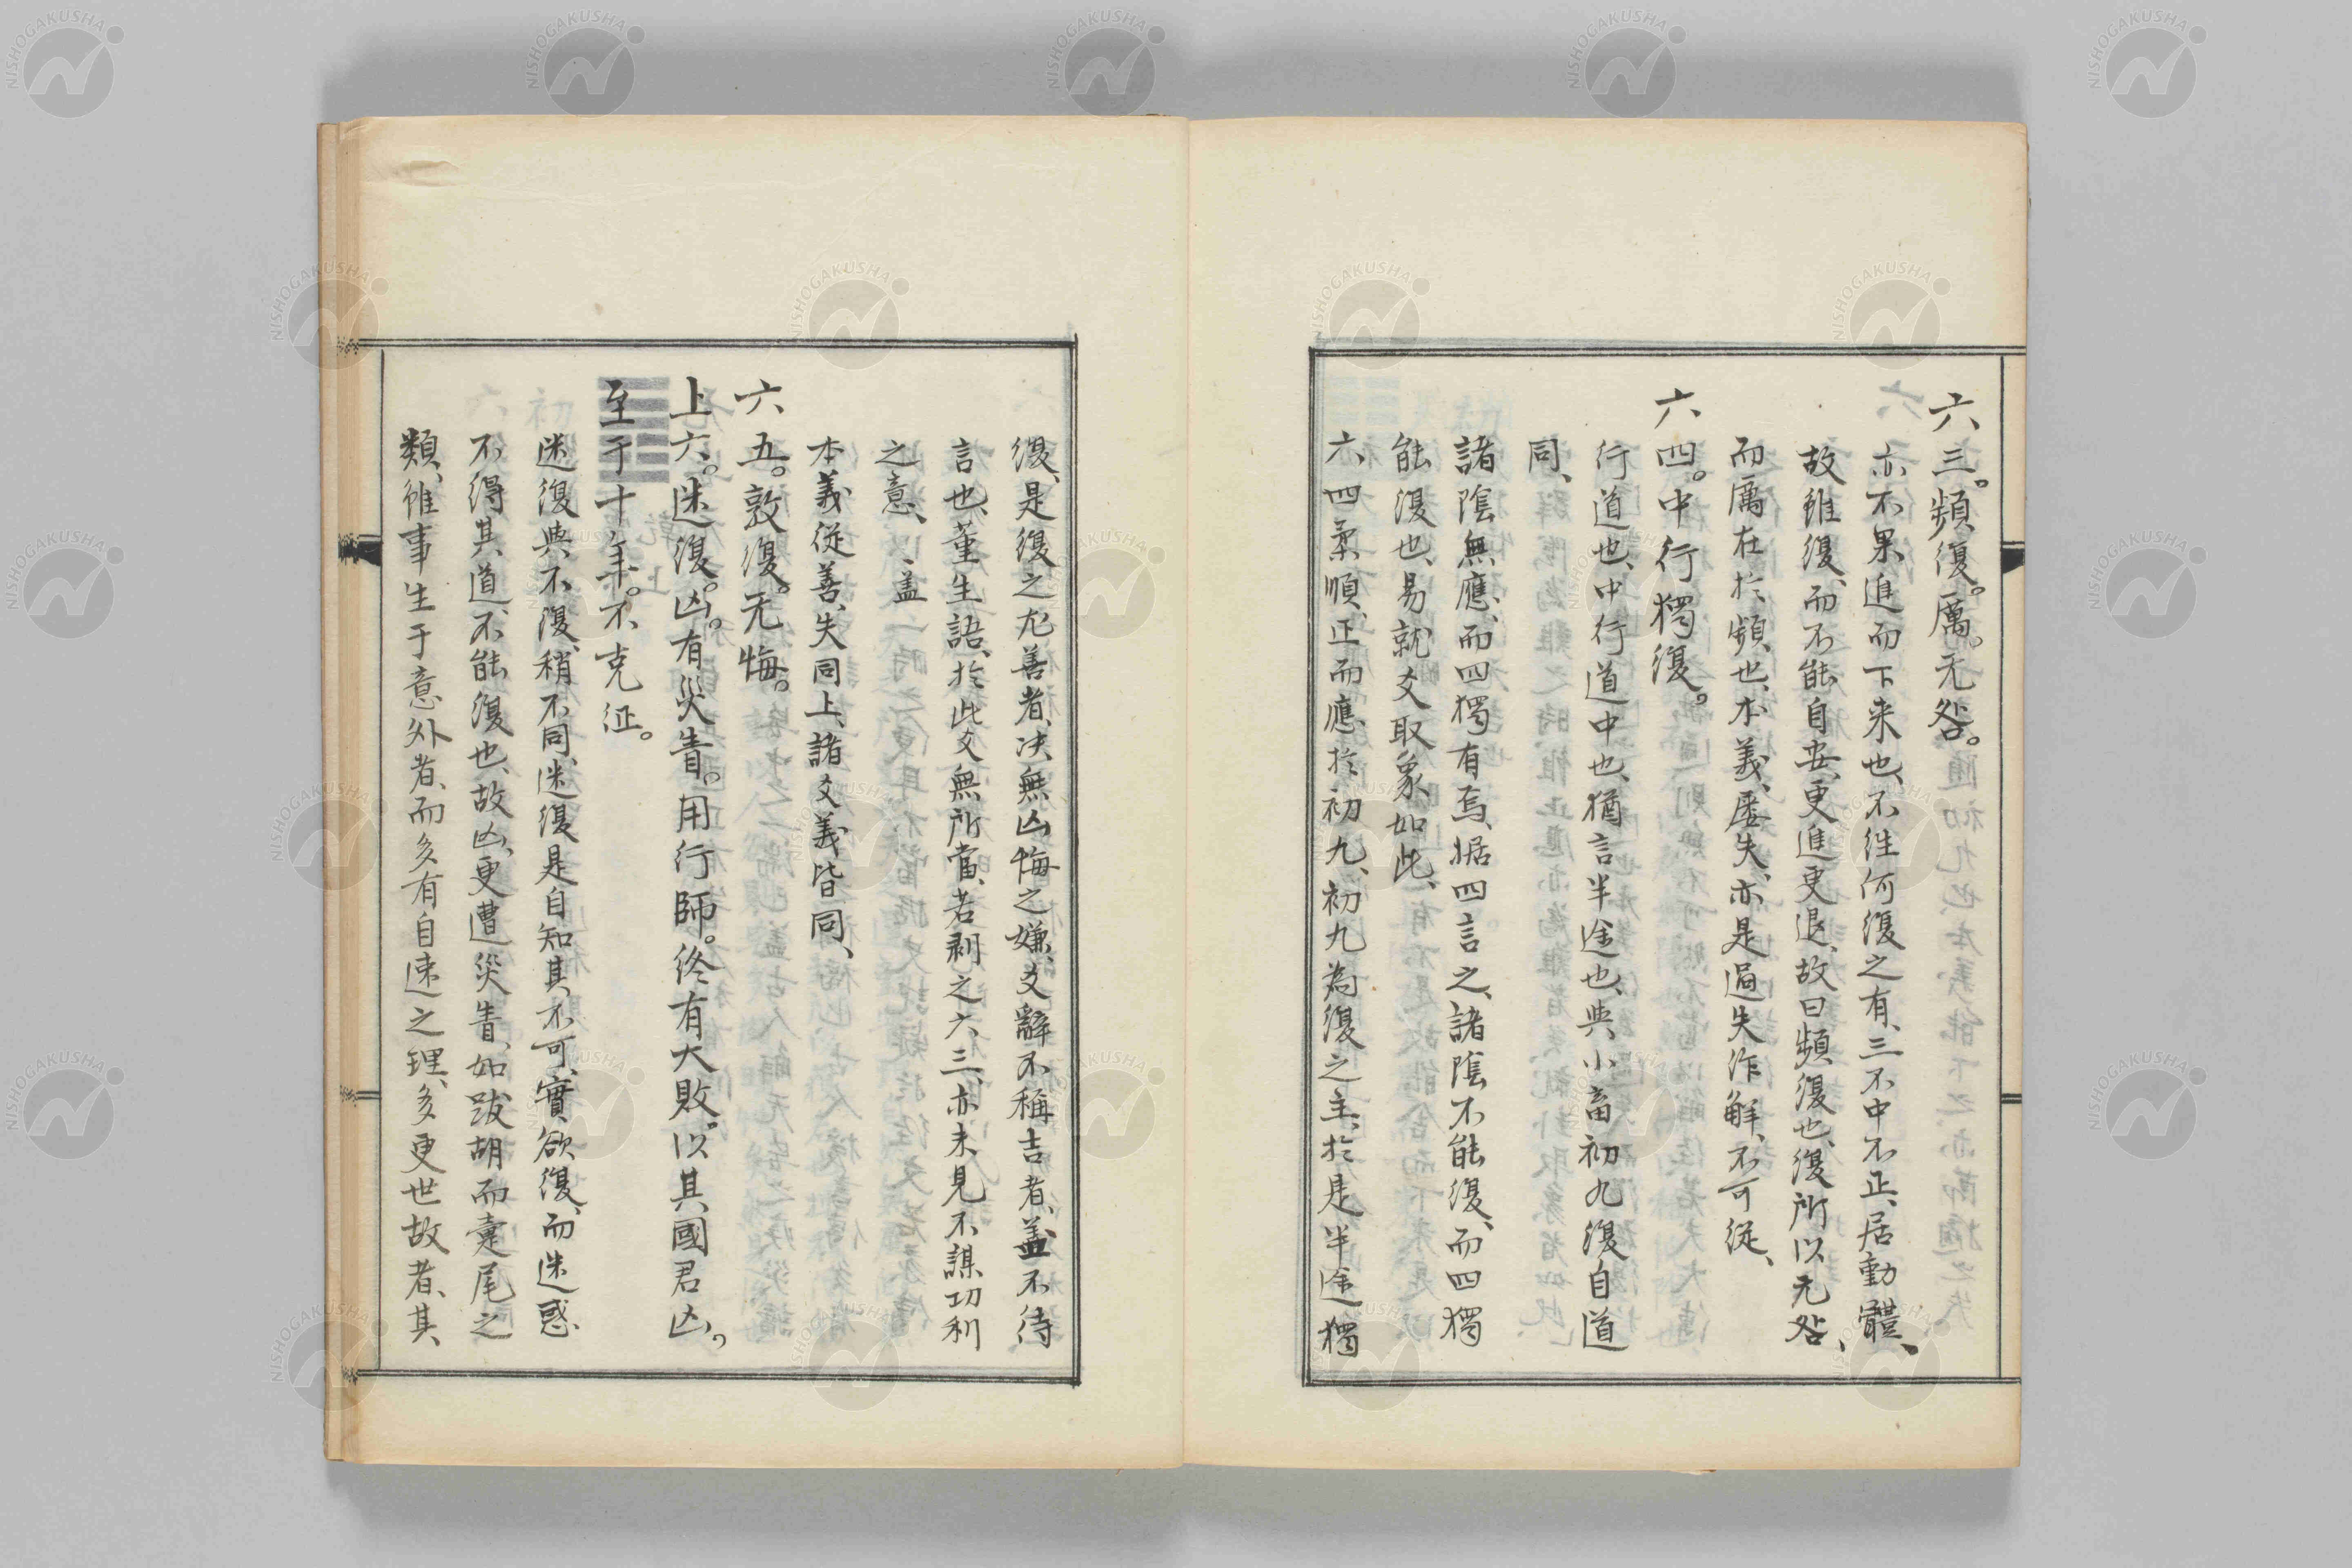 六三。頻復。厲。无咎。
亦不果進而下来也、不往何復之有、三不中不正、居動體、
故雖復、而不能自安、更進更退、故曰頻復也、復所以无咎、
而厲在於頻也、本義、屢失、亦是過失作解、不可從、
六四。中行獨復。
行道也、中行道中也、猶言半途也、與小畜初九復自道
同、
諸陰無應、而四獨有焉、据四言之、諸陰不能復、而四獨
能復也、易就爻取象如此、
六四柔順、正而應於初九、初九為復之主、於是半途獨
復、是復之尤善者、决無凶悔之嫌、爻辭不稱吉者、盖不待
言也、董生語、於此爻無所當、若剥之六三、亦未見不謀功利
之意、
本義從善、失同上、諸爻義皆同、
六五。敦復。无悔。
上六。迷復。凶。有災眚。用行師。終有大敗。以其國君凶。
至于十年。不克征。
迷復與不復、稍不同、迷復是自知其不可、實欲復、而迷惑
不得其道、不能復也、故凶、更遭災眚、如跋胡而疐尾之
類、雖事生于意外者、而多有自速之理、多更世故者、其
NISHOGAKUSHA